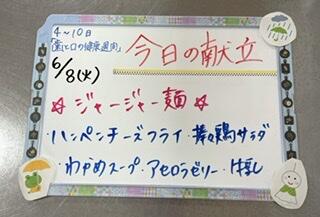 4〜10日
「歯と口の健康週間」
今日の献立
6/8(火)
☆ジャージャー麺☆
・ハンペンチーズフライ・棒々鶏サラダ
・わかめスープ・アセロラゼリー・牛乳